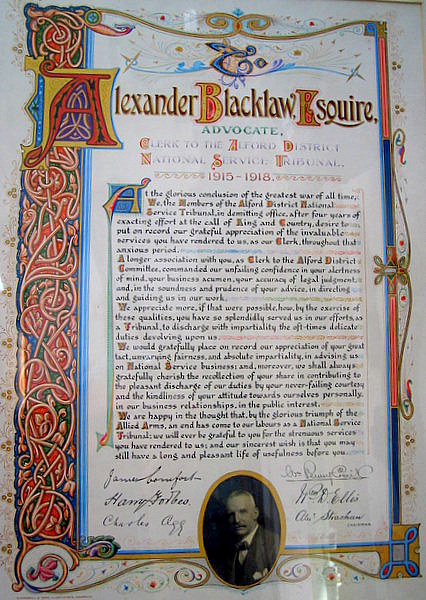 To
Alexander Blacklaw, Esquire,
ADVOCATE,
CLERK TO THE ALFORD DISTRICT
NATIONAL SERVICE TRIBUNAL.
1915-1918.
At the glorious conclusion of the greatest war of all time,
We, the Members of the Alford District National
Service Tribunal, in demitting office, after four years of
exacting effort at the call of King and Country, desire to
put on record our grateful appreciation of the invaluable
services you have rendered to us, as our Clerk, throughout that
anxious period.
A longer association with you, as Clerk to the Alford District
Committee, commanded our unfailing confidence in your alertness
of mind, your business acumen, your accuracy of legal judgment
and, in the soundness and prudence of your advice, in directing
and guiding us in our work.
We appreciate more, if that were possible, how, by the exercise of
these qualities, you have so splendidly served us in our efforts, as
a Tribunal, to discharge with impartiality the oft-times delicate
duties devolving upon us.
We would gratefully place on record our appreciation of your great
tact, unvarying fairness, and absolute impartiality, in advising us
on National Service business; and, moreover, we shall always
gratefully cherish the recollection of your share in contributing to
the pleasant discharge of our duties by your never-failing courtesy
and the kindliness of your attitude towards ourselves personally,
in our business relationships, in the public interest.
We are happy in the thought that, by the glorious triumph of the
Allied Arms, an end has come to our labours as a National Service
Tribunal; we will ever be grateful to you for the strenuous services
you have rendered to us; and our sincerest wish is that you may
still have a long and pleasant life of usefulness before you.
James Comfort
Harry Forbes.
Charles Agg
Wm R. Ellis
Alex Strachan
CHAIRMAN.